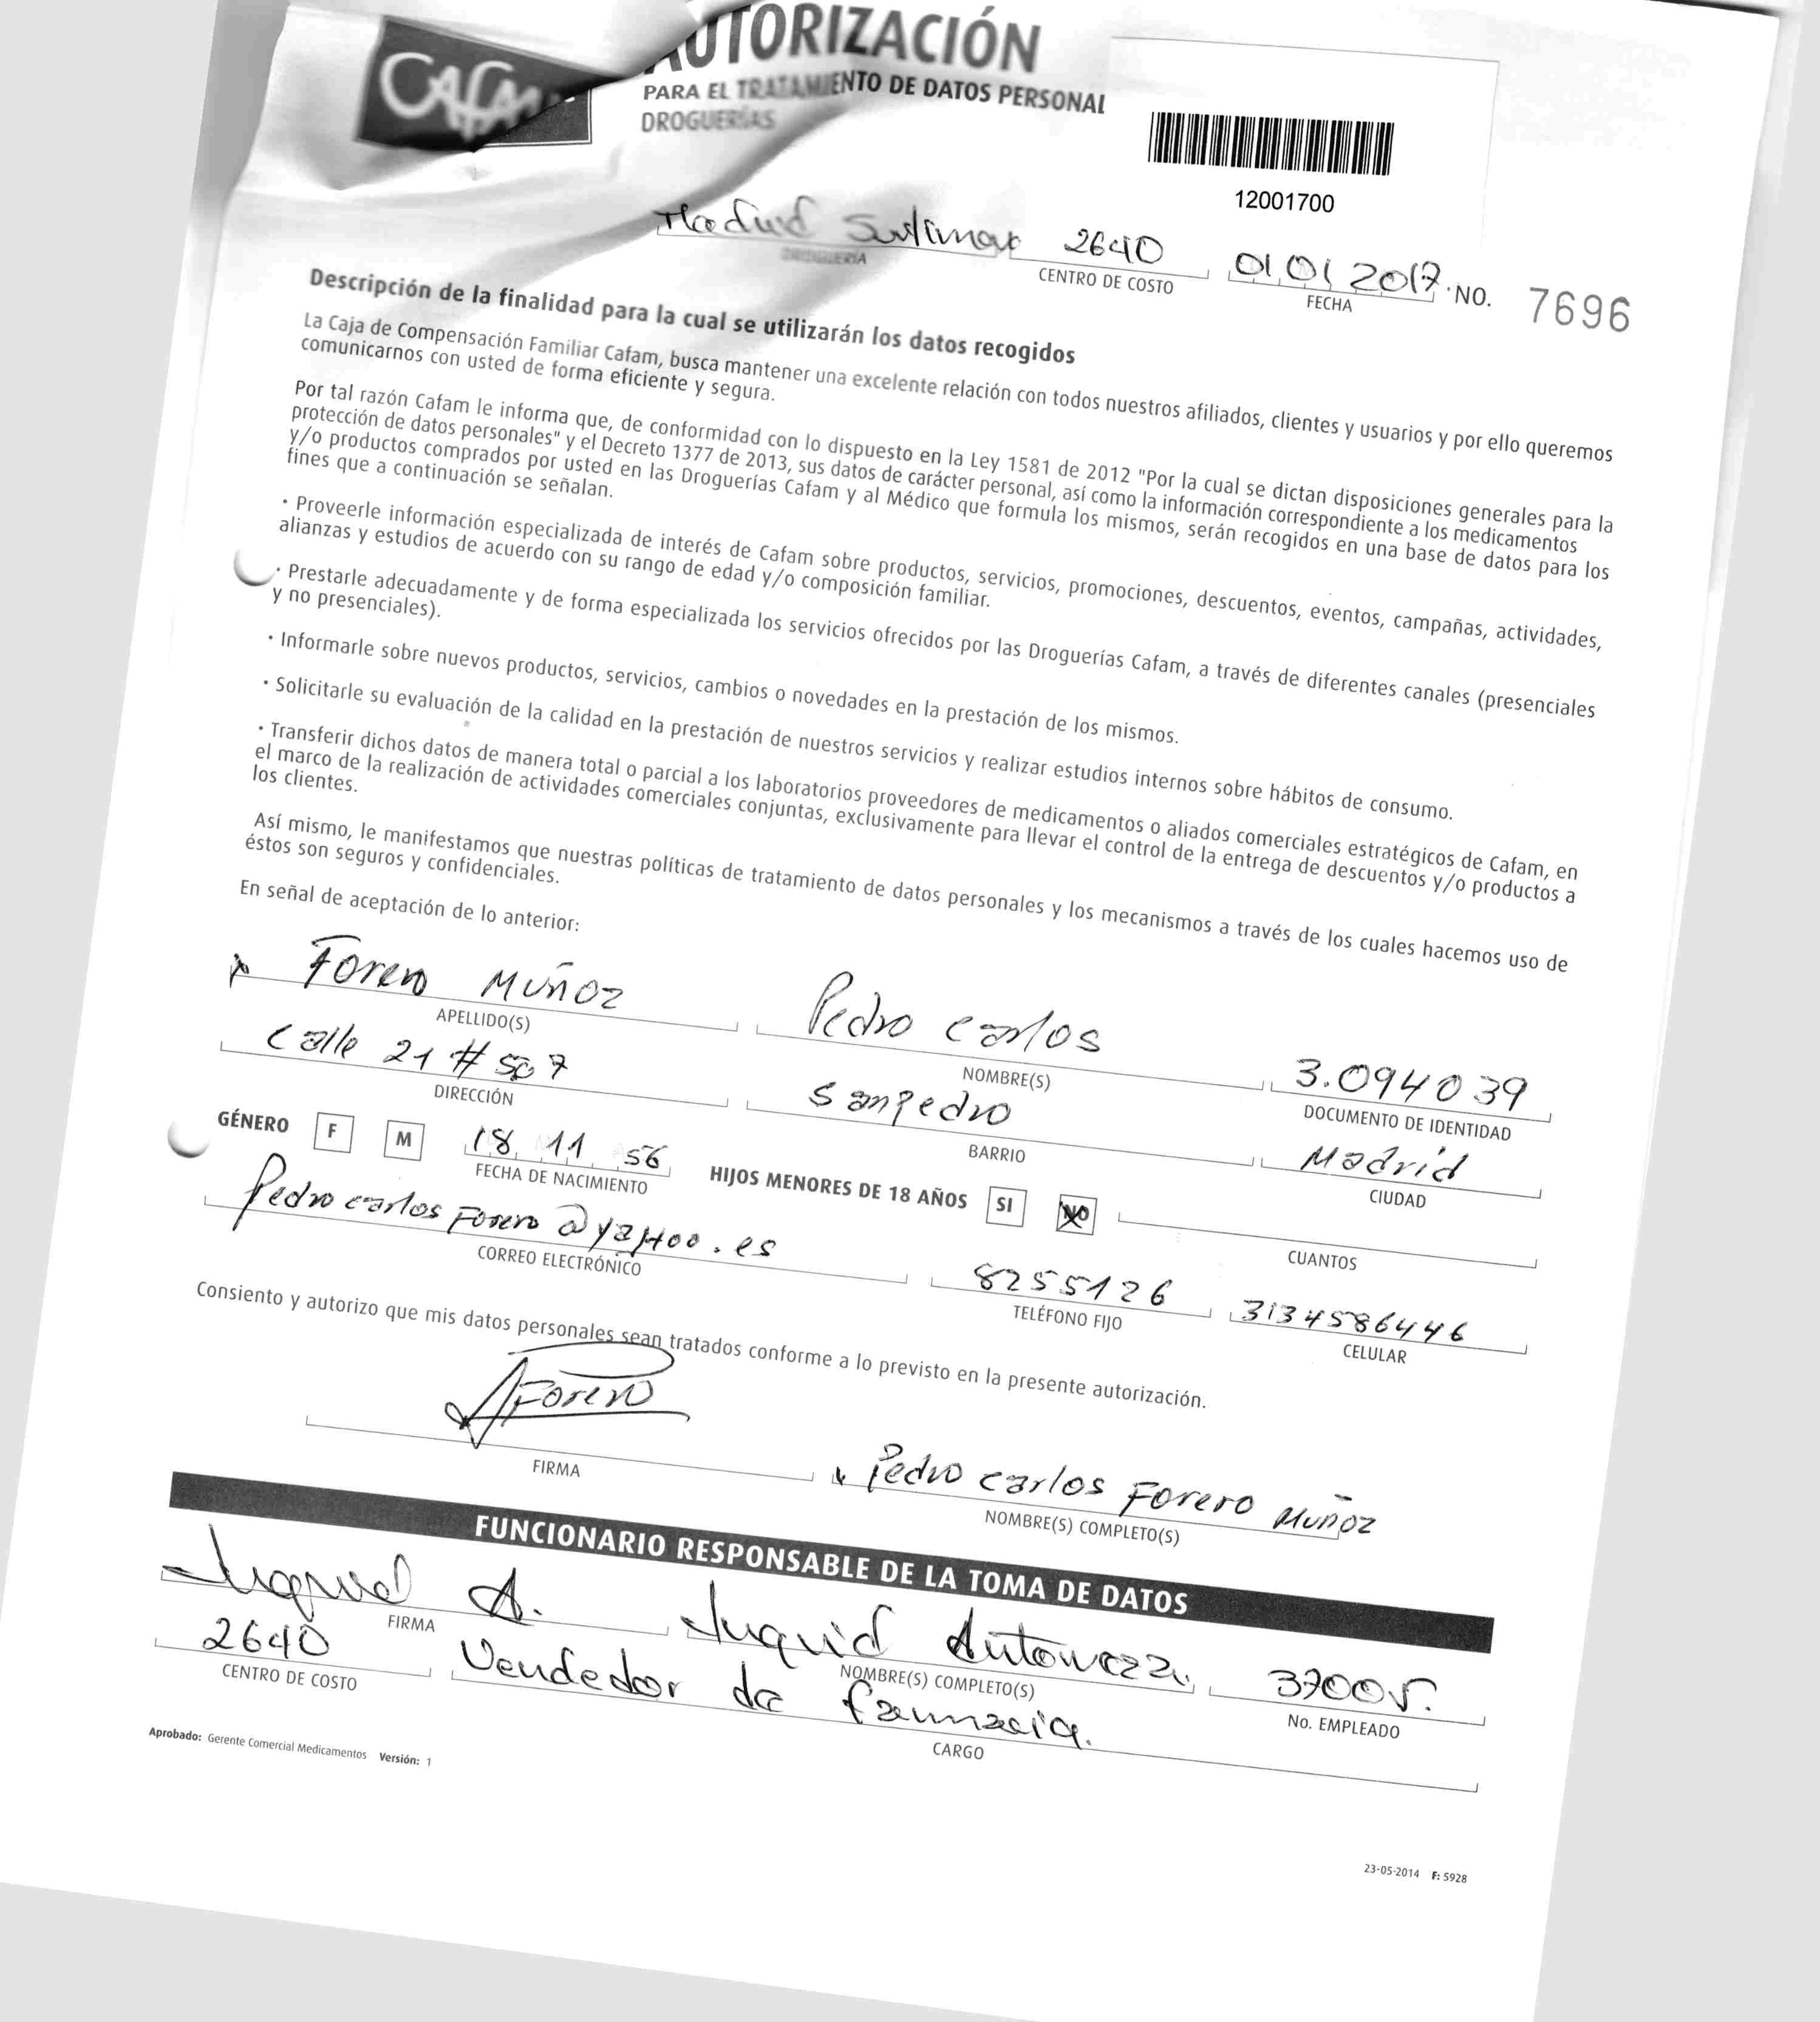 CAFAM
AUTORIZACIÓN
PARA EL TRATAMIENTO DE DATOS PERSONAL
DROGUERÍAS
12001700
Madrid 2640 01 01 2017 NO. 7696
DROGUERÍA CENTRO DE COSTO FECHA
Descripción de la finalidad para la cual se utilizarán los datos recogidos
La Caja de Compensación Familiar Cafam, busca mantener una excelente relación con todos nuestros afiliados, clientes y usuarios y por ello queremos
comunicarnos con usted de forma eficiente y segura.
Por tal razón Cafam le informa que, de conformidad con lo dispuesto en la Ley 1581 de 2012 "Por la cual se dictan disposiciones generales para la
protección de datos personales" y el Decreto 1377 de 2013, sus datos de carácter personal, así como la información correspondiente a los medicamentos
y/o productos comprados por usted en las Droguerías Cafam y al Médico que formula los mismos, serán recogidos en una base de datos para los
fines que a continuación se señalan.
• Proveerle información especializada de interés de Cafam sobre productos, servicios, promociones, descuentos, eventos, campañas, actividades,
alianzas y estudios de acuerdo con su rango de edad y/o composición familiar.
• Prestarle adecuadamente y de forma especializada los servicios ofrecidos por las Droguerías Cafam, a través de diferentes canales (presenciales
y no presenciales).
• Informarle sobre nuevos productos, servicios, cambios o novedades en la prestación de los mismos.
• Solicitarle su evaluación de la calidad en la prestación de nuestros servicios y realizar estudios internos sobre hábitos de consumo.
• Transferir dichos datos de manera total o parcial a los laboratorios proveedores de medicamentos o aliados comerciales estratégicos de Cafam, en
el marco de la realización de actividades comerciales conjuntas, exclusivamente para llevar el control de la entrega de descuentos y/o productos a
los clientes.
Así mismo, le manifestamos que nuestras políticas de tratamiento de datos personales y los mecanismos a través de los cuales hacemos uso de
éstos son seguros y confidenciales.
En señal de aceptación de lo anterior:
Forero Muñoz Pedro Carlos 3.094039
APELLIDO(S) NOMBRE(S) DOCUMENTO DE IDENTIDAD
Calle 21 # 507 Sanpedro Madrid
DIRECCIÓN BARRIO CIUDAD
GÉNERO F M 18 11 56 HIJOS MENORES DE 18 AÑOS SI NO
FECHA DE NACIMIENTO CUANTOS
Pedro carlos Forero @yaHoo.es 8255126 3134586446
CORREO ELECTRÓNICO TELÉFONO FIJO CELULAR
Consiento y autorizo que mis datos personales sean tratados conforme a lo previsto en la presente autorización.
Forero Pedro Carlos Forero Muñoz
FIRMA NOMBRE(S) COMPLETO(S)
FUNCIONARIO RESPONSABLE DE LA TOMA DE DATOS
A. 37005.
FIRMA NOMBRE(S) COMPLETO(S) No. EMPLEADO
2640 Vendedor de farmacia.
CENTRO DE COSTO CARGO
Aprobado: Gerente Comercial Medicamentos Versión: 1
23-05-2014 F: 5928